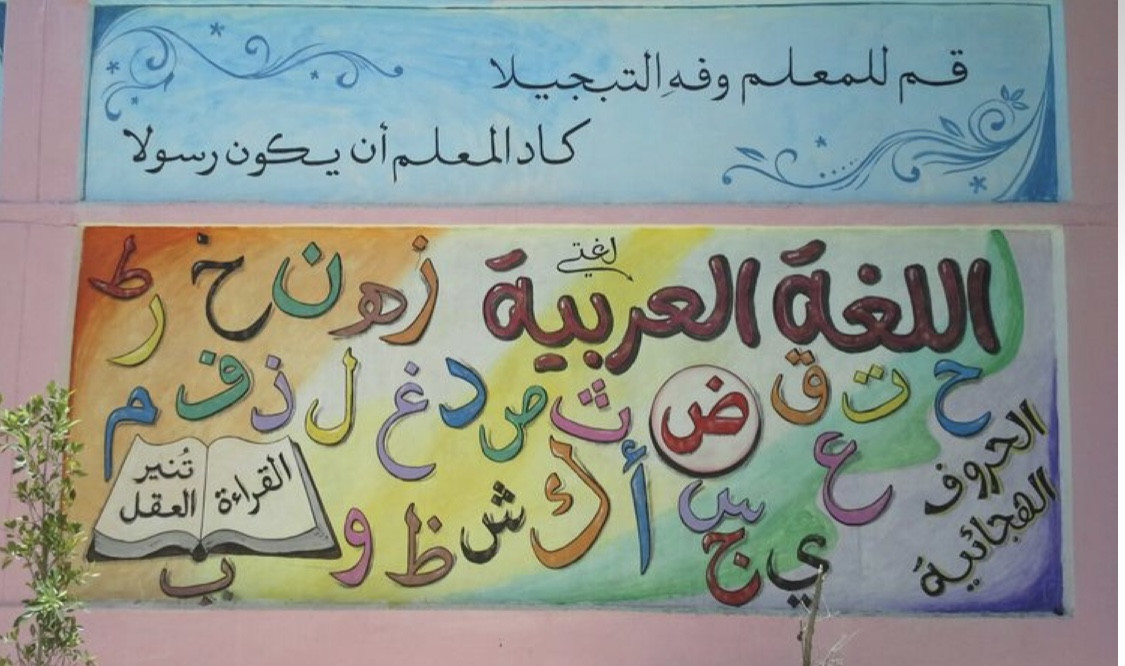 قم للمعلم وفهِ التبجيلا
كاد المعلم أن يكون رسولا
لغتي
اللغة العربية
ز هـ ن خ ط
ر
ح ت ق ض ث ص د غ ل ذ ف م
الحروف
الهجائية
ع س أ ك ش ظ و
القراءة تُنير
العقل
ي ج ب